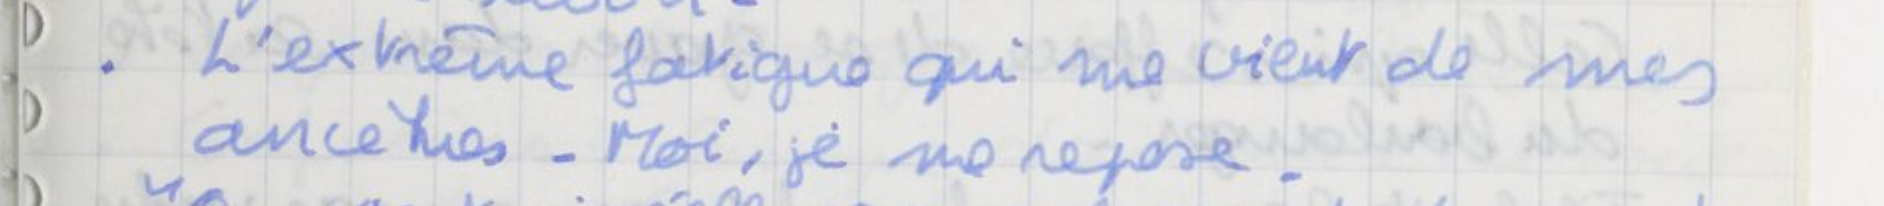 . L'extrême fatigue qui me vient de mes
ancêtres - Moi, je me repose.